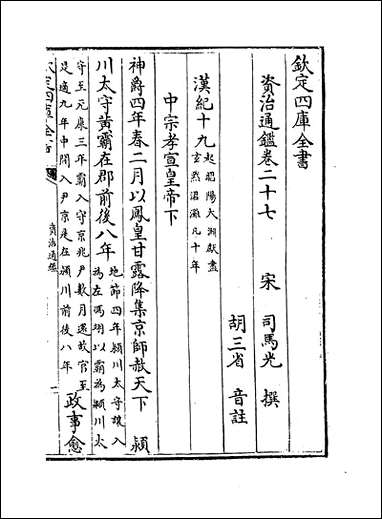 欽定四庫全書
資治通鑑卷二十七 宋 司馬光 撰
胡三省 音註
漢紀十九 起昭陽大淵獻盡玄黓涒灘凡十年
中宗孝宣皇帝下
神爵四年春二月以鳳皇甘露降集京師赦天下 潁
川太守黃霸在郡前後八年 地節四年潁川太守讓入為左馮翊以霸為潁川太
守至元康三年霸入守京兆尹數月還故官至是適九年中間入尹京是在潁川前後八年 政事愈
欽定四庫全書
資治通鑑
一